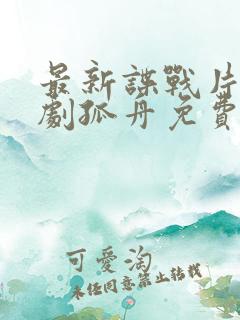 最新諜戰片
劇孤丹免費
可愛淘
未经同意禁止转载